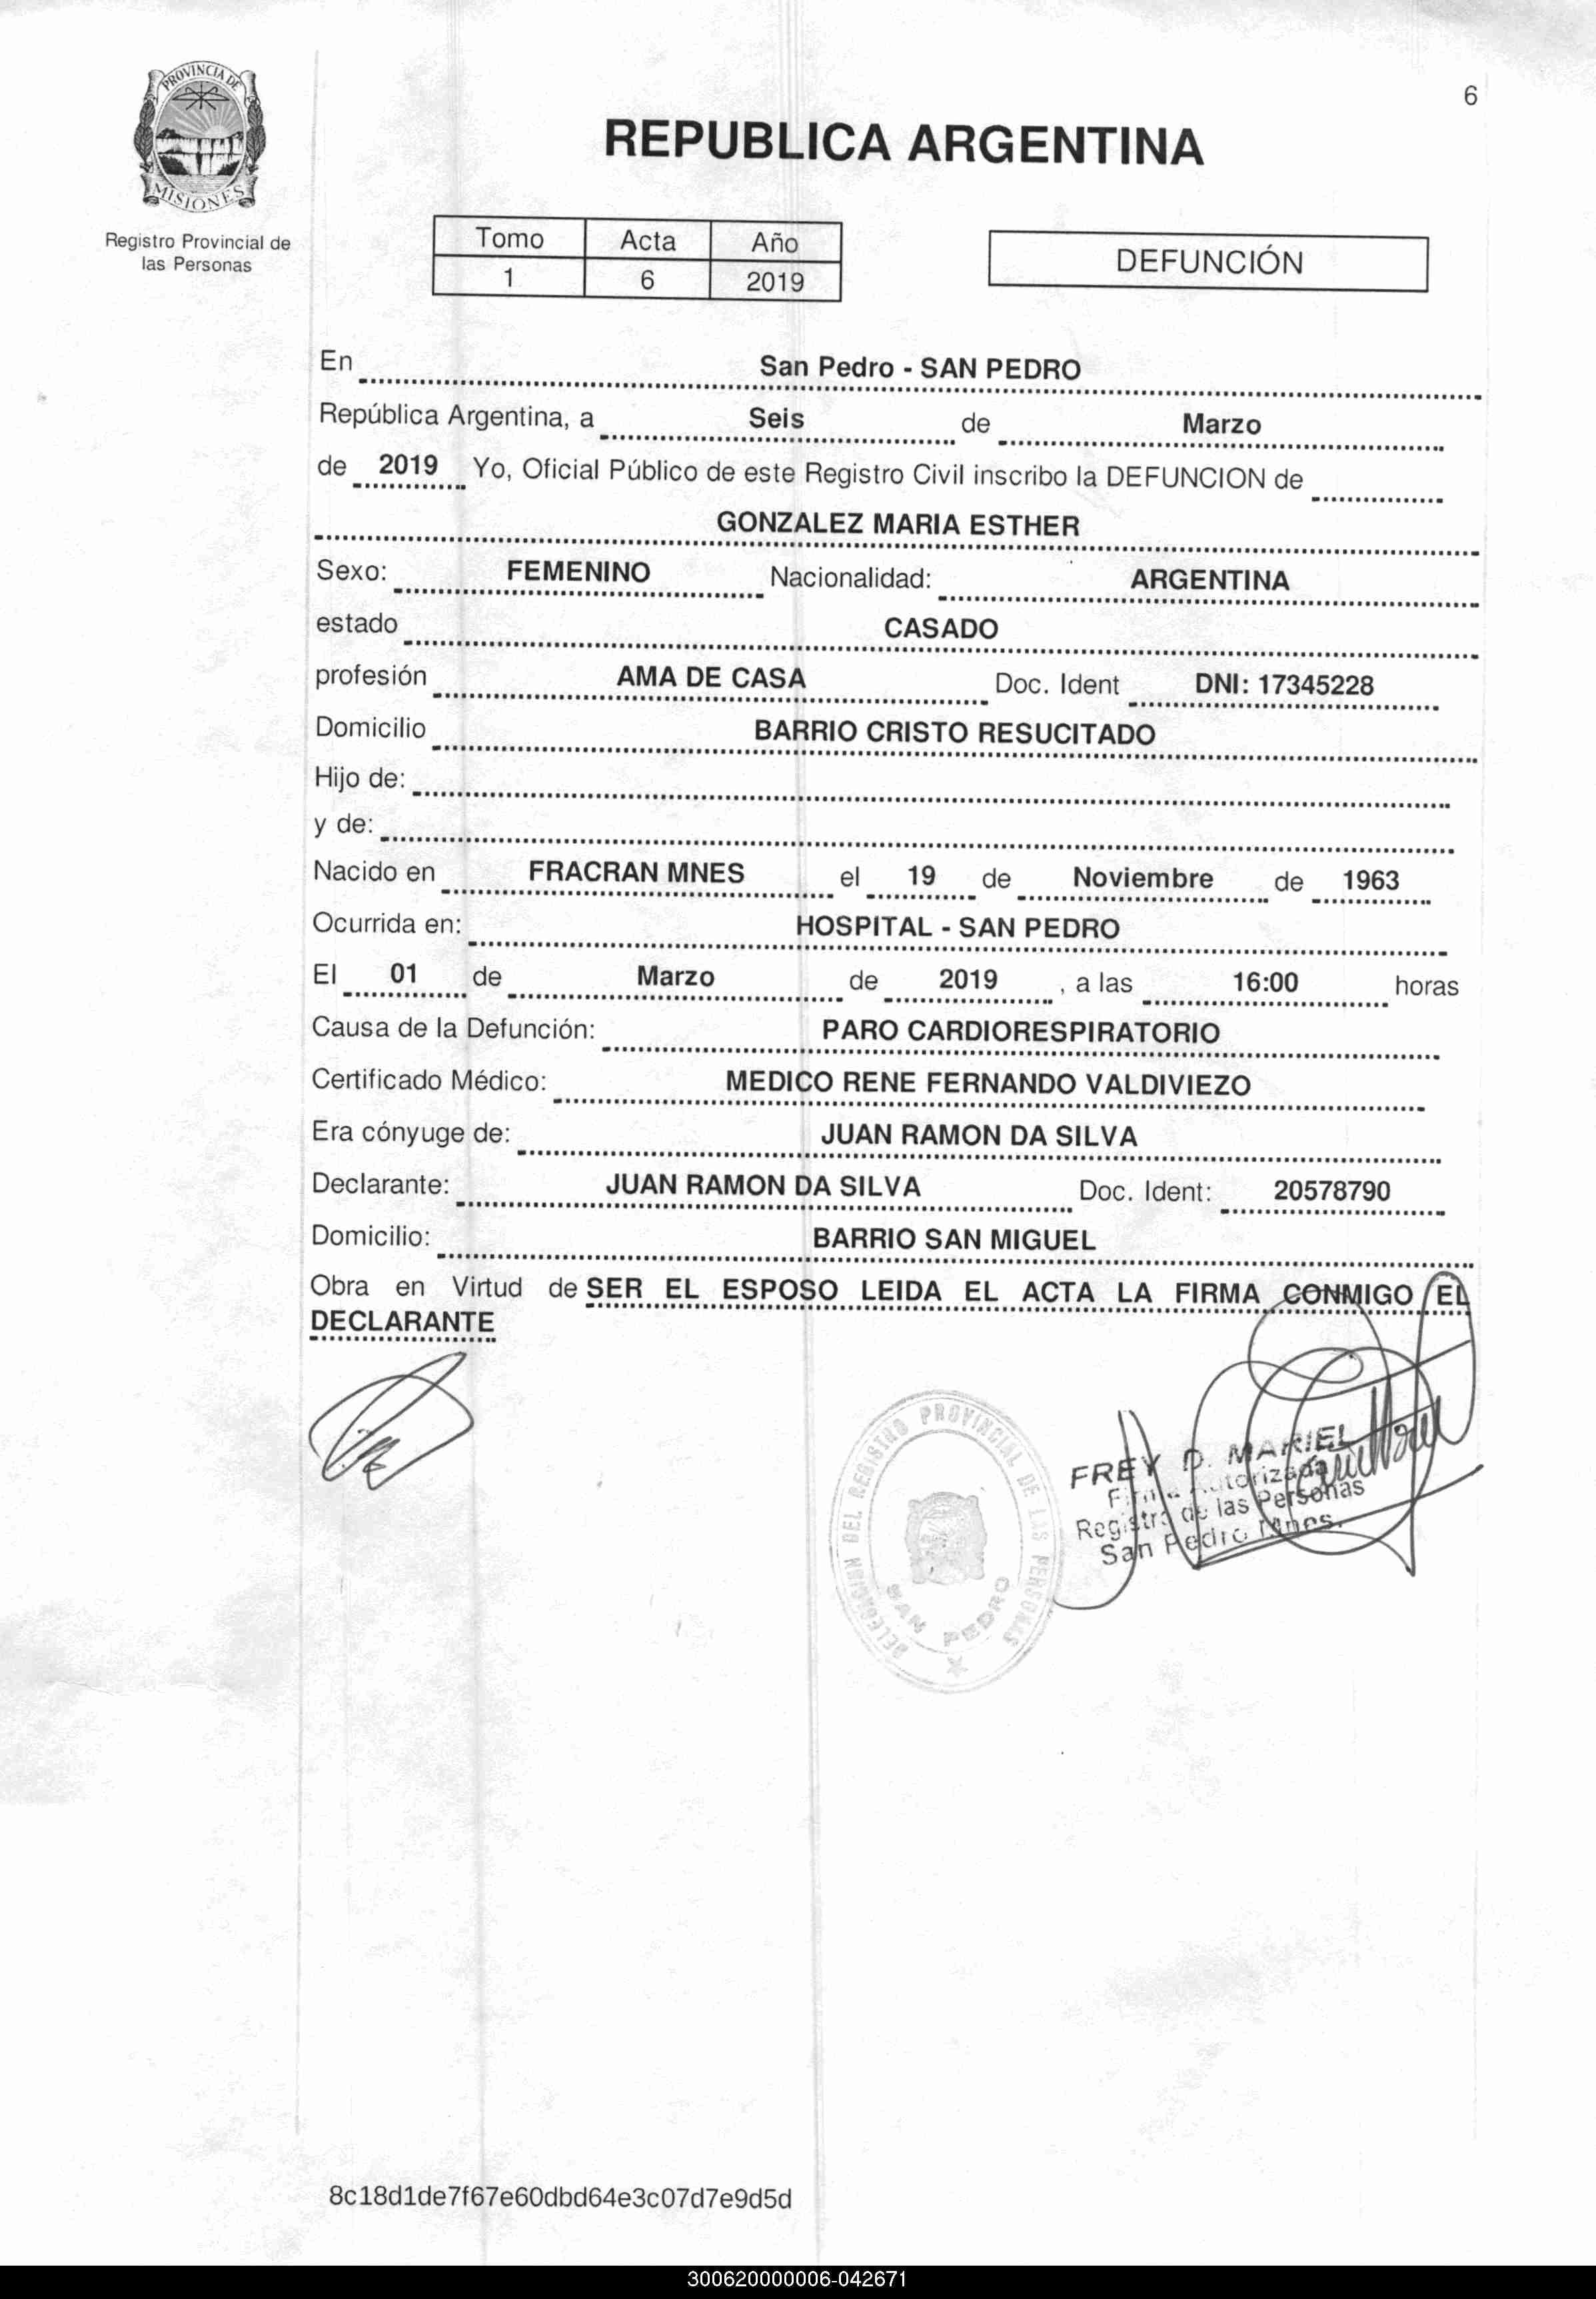 6
PROVINCIA DE
MISIONES
Registro Provincial de
las Personas
REPUBLICA ARGENTINA
Tomo Acta Año
1 6 2019
DEFUNCIÓN
En San Pedro - SAN PEDRO
República Argentina, a Seis de Marzo
de 2019 Yo, Oficial Público de este Registro Civil inscribo la DEFUNCION de
GONZALEZ MARIA ESTHER
Sexo: FEMENINO Nacionalidad: ARGENTINA
estado CASADO
profesión AMA DE CASA Doc. Ident DNI: 17345228
Domicilio BARRIO CRISTO RESUCITADO
Hijo de:
y de:
Nacido en FRACRAN MNES el 19 de Noviembre de 1963
Ocurrida en: HOSPITAL - SAN PEDRO
El 01 de Marzo de 2019 , a las 16:00 horas
Causa de la Defunción: PARO CARDIORESPIRATORIO
Certificado Médico: MEDICO RENE FERNANDO VALDIVIEZO
Era cónyuge de: JUAN RAMON DA SILVA
Declarante: JUAN RAMON DA SILVA Doc. Ident: 20578790
Domicilio: BARRIO SAN MIGUEL
Obra en Virtud de SER EL ESPOSO LEIDA EL ACTA LA FIRMA CONMIGO EL
DECLARANTE
DELEGACION DEL REGISTRO PROVINCIAL DE LAS PERSONAS
SAN PEDRO
FREY D. MARIEL
Firma Autorizada
Registro de las Personas
San Pedro Mnes.
8c18d1de7f67e60dbd64e3c07d7e9d5d
300620000006-042671